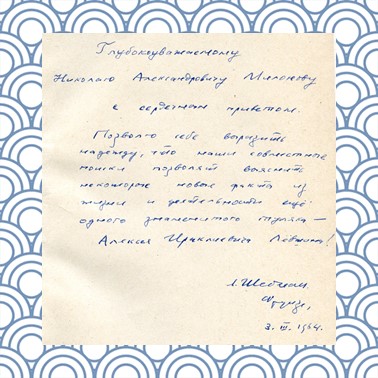 Глубокоуважаемому
Николаю Александровичу Милонову
с сердечным приветом.
Позволю себе выразить
надежду, что наши совместные
поиски позволят выяснить
некоторые новые факты из
жизни и деятельности ещё
одного знаменитого туляка —
Алексея Ираклиевича Левшина!
Фрунзе,
3. III. 1964.